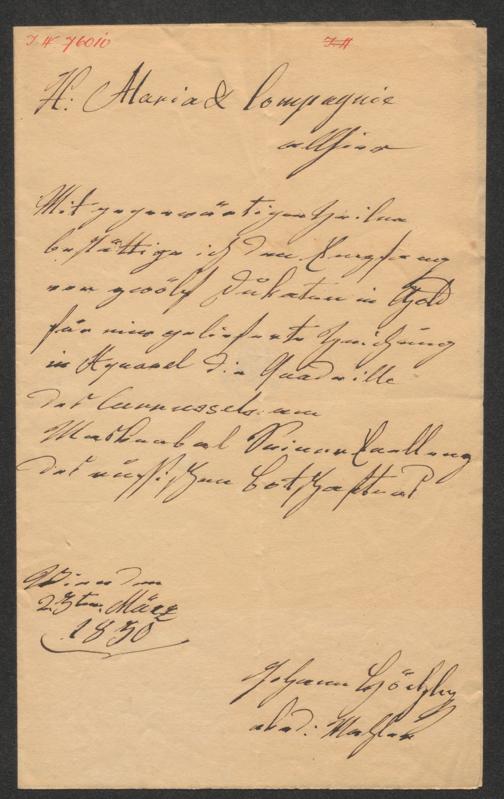 I. N 76010
I. N
H: Maria & Compagnie
allhier
Mit gegenwärtigen Zeilen
bestättige ich den Empfang
von zwölf Dukaten in Gold
für eine gelieferte Zeichnung
in Aquarel die Quadrille
des Carroussels. am
Maskenbal Seiner Exellenz
des russischen Botschafters
Wien den
23ten März
1830
Johann
akad: Mahler